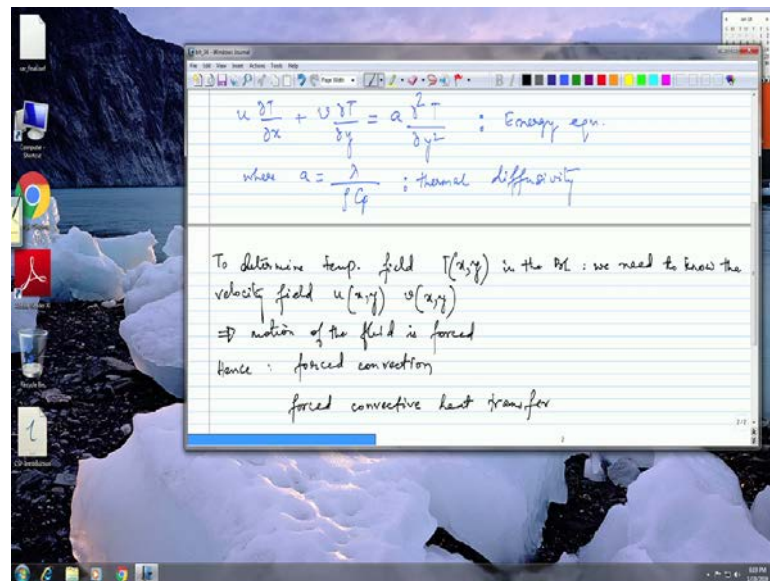 bit_36 - Windows Journal
File Edit View Insert Actions Tools Help
Page Width
B I
u ∂T/∂x + v ∂T/∂y = a ∂²T/∂y² : Energy eqn.
where a = λ/ρCp : thermal diffusivity
To determine temp. field T(x,y) in the BL : we need to know the
velocity field u(x,y) v(x,y)
⇒ motion of the fluid is forced
Hence : forced convection
forced convective heat transfer
2
2 / 2
Computer - Shortcut
Recycle Bin
CSP-Introduction
6:03 PM